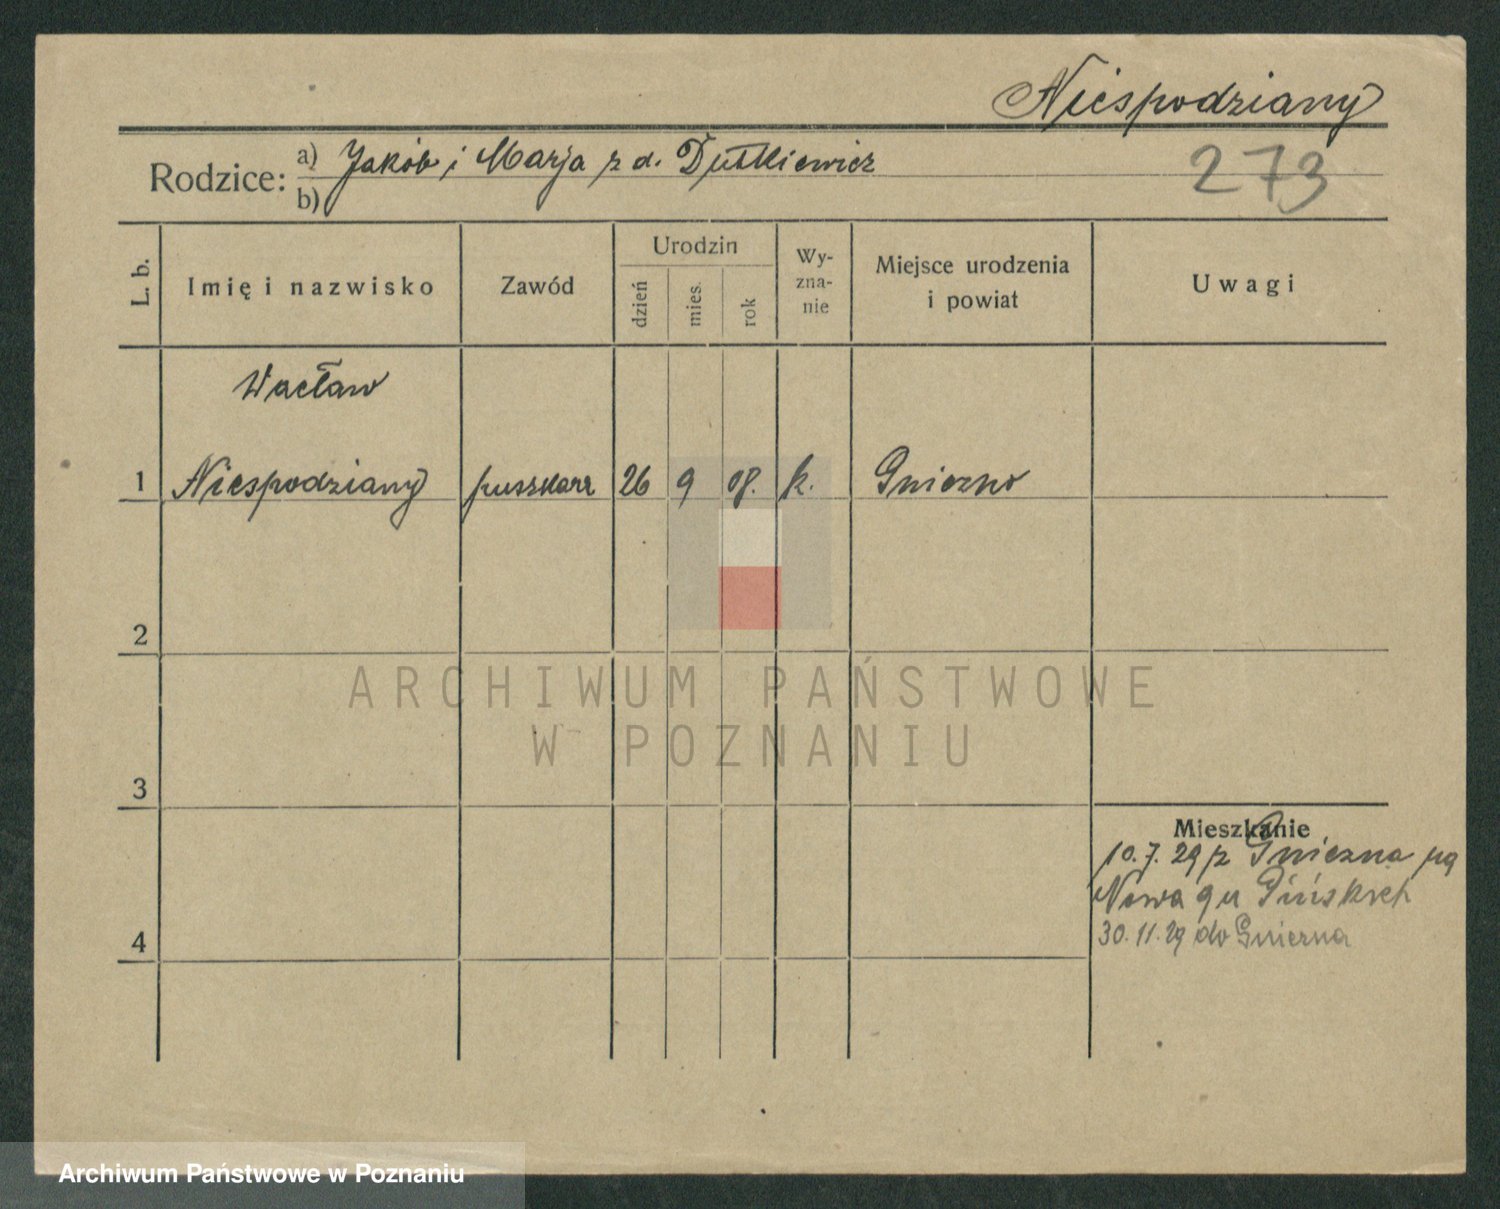 Niespodziany
Rodzice: a) Jakób i Marja z d. Dutkiewicz
b)
273
L. b.
Imię i nazwisko
Zawód
Urodzin
dzień
mies.
rok
Wy-
zna-
nie
Miejsce urodzenia
i powiat
Uwagi
Wacław
1 Niespodziany puszkarz 26 9 08. k. Gniezno
2
ARCHIWUM PAŃSTWOWE
W POZNANIU
3
Mieszkanie
10.7.29 z Gniezna na
Nowa 9 u Pińskich
4
30.11.29 do Gniezna
Archiwum Państwowe w Poznaniu